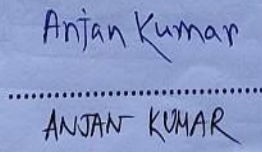 Anjan Kumar
ANJAN KUMAR